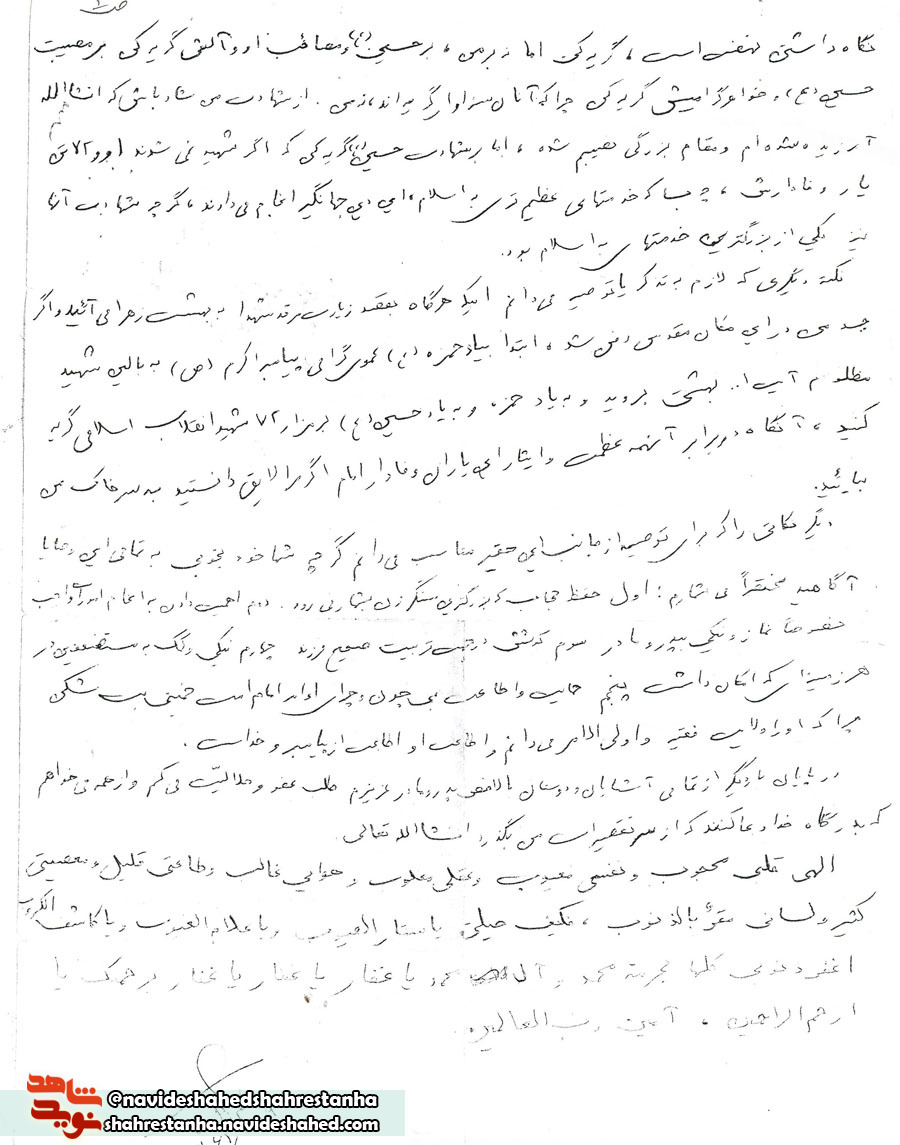 نگاه داشتن نهضت است، گریه کن اما نه بر من، بر حسین (ع) و مصائب او و آلش گریه کن بر مصیبت
حسین (ع)، و خواهر گرامیش گریه کن چرا که آنان سزاوار گریه اند، نه من. از شهادت من شاد باش که انشاالله
آمرزیده شده ام و مقام بزرگی نصیبم شده، اما بر شهادت حسین (ع) گریه کن که اگر شهید نمی شوند (او و ۷۲ تن
یار وفادارش، چه بسا که خدمتهای عظیم تری به اسلام، این دین جهانگیر انجام می دادند، گر چه شهادت آنها
نیز یکی از بزرگترین خدمتها به اسلام بود.
نکته دیگری که لازم به تذکر یا توصیه می دانم اینکه هرگاه بقصد زیارت مرقد شهدا به بهشت زهرا می آئید و اگر
جسد من در این مکان مقدس دفن شد، ابتدا بیاد حمزه (ع) عموی گرامی پیامبر اکرم (ص) به بالین شهید
مظلوم آیت ا.. بهشتی بروید و به یاد حمزه و به یاد حسین (ع) بر مزار ۷۲ شهید انقلاب اسلامی گریه
کنید، آنگاه در برابر آنهمه عظمت و ایثار این یاران وفادار امام اگر مرا لایق دانستید به سر خاک من
بیائید.
دیگر نکاتی را که برای توصیه از جانب این حقیر مناسب می دانم گر چه شما خود بخوبی به تمامی این وصایا
آگاهید مختصراً می شمارم: اول حفظ حجاب که بزرگترین سنگر زن بشمار می رود. دوم اهمیت دادن به انجام امورات واجب
خصوصاً نماز و نیکی به پدر و مادر سوم کوشش در جهت تربیت صحیح فرزند چهارم نیکی و کمک به مستضعفین در
هر زمینه ای که امکان داشت پنجم حمایت و اطاعت بی چون و چرای اوامر امام امت خمینی بت شکن
چرا که او را ولایت فقیه و اولی الامر می دانم و اطاعت او اطاعت از پیامبر و خداست.
در پایان بار دیگر از تمامی آشنایان و دوستان بالاخص پدر و مادر عزیزم طلب عفو و حلالیت می کنم و از همه می خواهم
که بدرگاه خدا دعا کنند که از سر تقصیرات من بگذرد انشاالله تعالی
الهی قلبی محجوب و نفسی معیوب و عقلی مغلوب و هوایی غالب و طاعتی قلیل و معصیتی
کثیر و لسانی مقرٌ بالذنوب، فکیف حیلتی یا ستار العیوب و یا علام الغیوب و یا کاشف الکروب
اغفر ذنوبی کلها بحرمة محمد و آل محمد یا غفار یا غفار یا غفار برحمتک یا
ارحم الراحمین، آمین رب العالمین.
شاهد
نوید
@navideshahedshahrestanha
shahrestanha.navideshahed.com